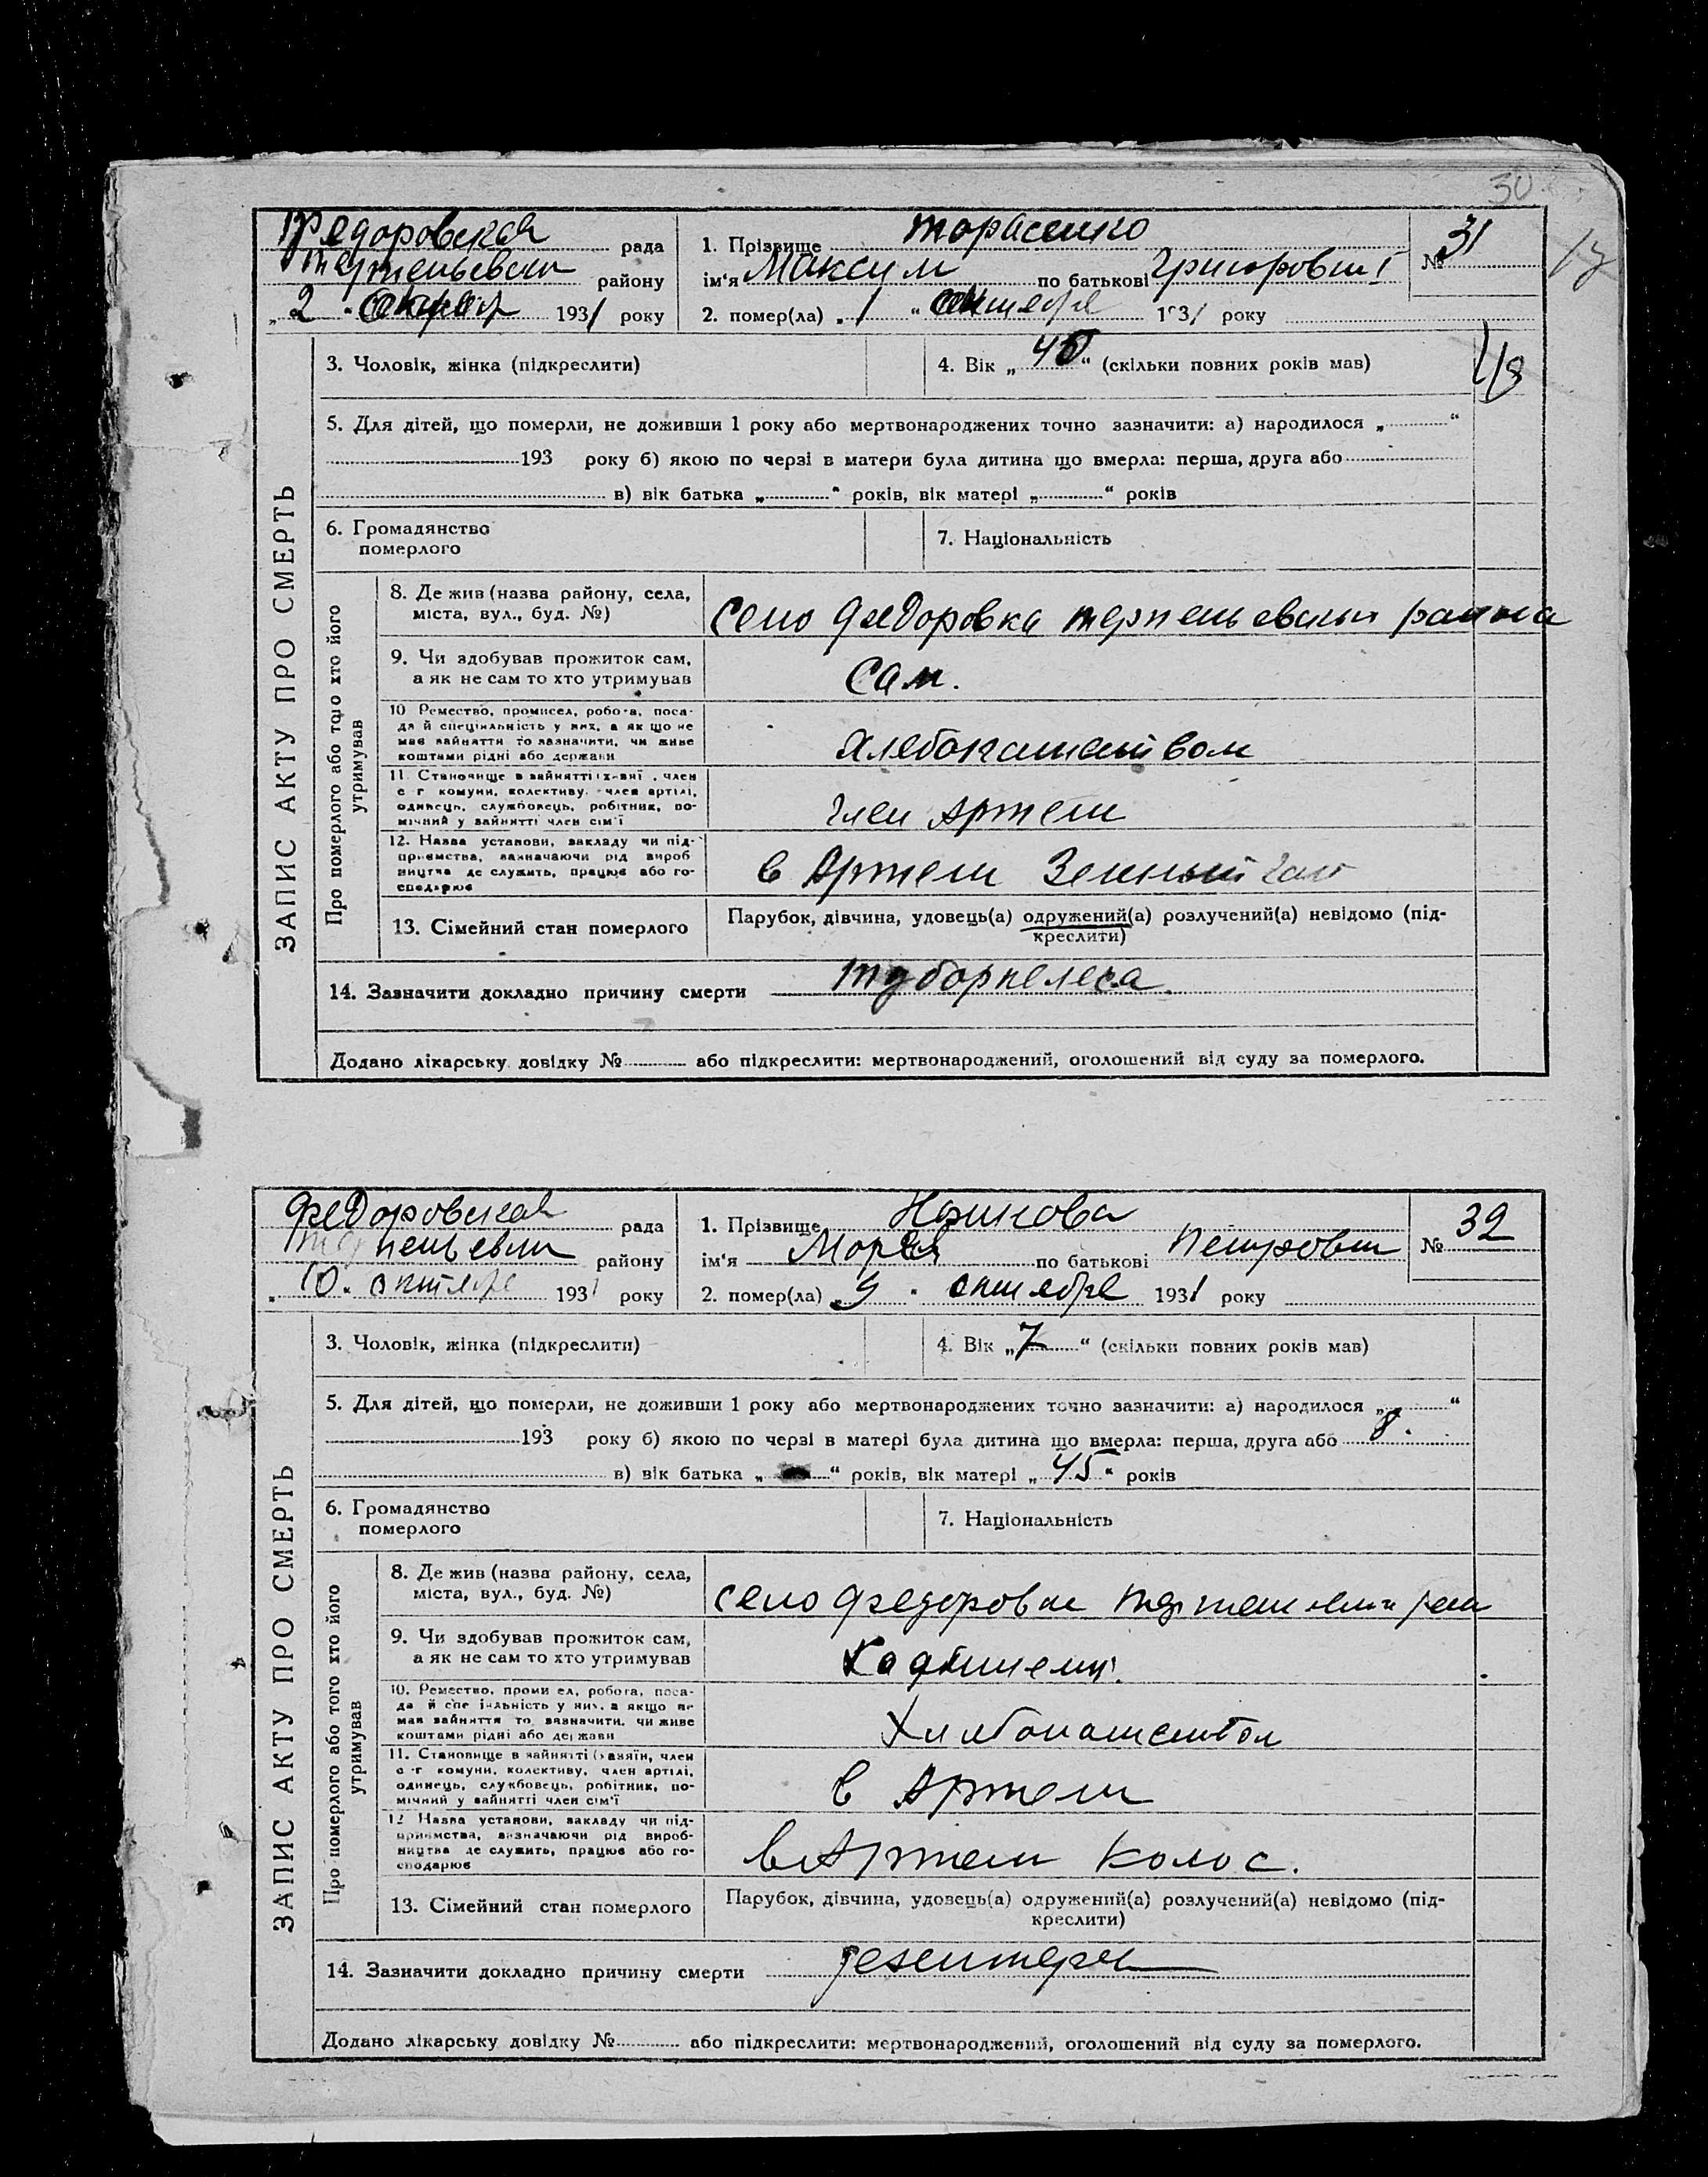 30
Федоровская рада
Терпеньевски району
„ 2 “ октября 1931 року
1. Прізвище Торасенко
ім'я Максим по батькові Григоровит
2. помер(ла) „ 1 “ октября 1931 року
№ 31
17
ЗАПИС АКТУ ПРО СМЕРТЬ
3. Чоловік, жінка (підкреслити)
4. Вік „ 40 “ (скільки повних років мав)
5. Для дітей, що померли, не доживши 1 року або мертвонароджених точно зазначити: а) народилося „ “
193 року б) якою по черзі в матери була дитина що вмерла: перша, друга або
в) вік батька „ “ років, вік матері „ “ років
6. Громадянство
померлого
7. Національність
Про померлого або того хто його
утримував
8. Де жив (назва району, села,
міста, вул., буд. №)
село Федоровка терпеньевски района
9. Чи здобував прожиток сам,
а як не сам то хто утримував
Сам.
10 Ремество, промисел, робота, поса-
да й спеціяльність у них, а як що не
мав зайняття то зазначити, чи живе
коштами рідні або держави
11. Становище в зайнятті , член
с г комуни, колективу, член артілі,
одинець, службовець, робітник, по-
мічний у зайнятті член сім'ї
член Артели
12. Назва установи, закладу чи під-
приємства, зазначаючи рід вироб
ництва де служить, працює або го-
сподарює
в Артели
13. Сімейний стан померлого
Парубок, дівчина, удовець(а) одружений(а) розлучений(а) невідомо (під-
креслити)
14. Зазначити докладно причину смерти туборкелеса.
Додано лікарську довідку № або підкреслити: мертвонароджений, оголошений від суду за померлого.
Федоровская рада
Терпеньевски району
„ 10 “ октября 1931 року
1. Прізвище
ім'я Морея по батькові Петровн
2. помер(ла) „ 9 “ октября 1931 року
№ 32
ЗАПИС АКТУ ПРО СМЕРТЬ
3. Чоловік, жінка (підкреслити)
4. Вік „ 7 “ (скільки повних років мав)
5. Для дітей, що померли, не доживши 1 року або мертвонароджених точно зазначити: а) народилося „ “
193 року б) якою по черзі в матері була дитина що вмерла: перша, друга або 8.
в) вік батька „ “ років, вік матері „ 45 “ років
6. Громадянство
померлого
7. Національність
Про померлого або того хто його
утримував
8. Де жив (назва району, села,
міста, вул., буд. №)
село Федоровка
9. Чи здобував прожиток сам,
а як не сам то хто утримував
10. Ремество, проми ел, робота, поса-
да й спе іяльність у них, а якщо не
мав зайняття то зазначити, чи живе
коштами рідні або держави
11. Становище в зайнятті (хазяїн, член
с-г комуни, колективу, член артілі,
одинець, службовець, робітник, по-
мічний у зайнятті член сім'ї
в Артели
12 Назва установи, закладу чи під-
приємства, зазначаючи рід вироб-
ництва де служить, працює або го-
сподарює
в Артели Колос.
13. Сімейний стан померлого
Парубок, дівчина, удовець(а) одружений(а) розлучений(а) невідомо (під-
креслити)
14. Зазначити докладно причину смерти дезентери
Додано лікарську довідку № або підкреслити: мертвонароджений, оголошений від суду за померлого.